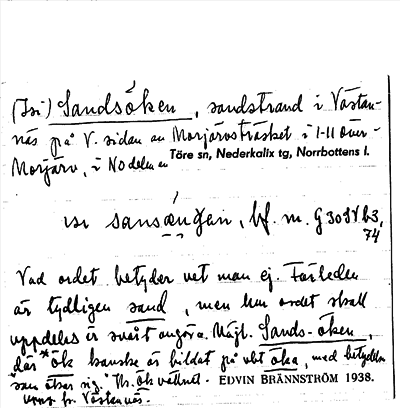 (Isi) Sandsöken, sandstrand i Västan-
näs på V. sidan av Morjärvsträsket i I-II Över-
Morjärv, i NO delen av Töre sn, Nederkalix tg, Norrbottens l.
isi sansən, bf. m. G 30
74
Vad ordet betyder vet man ej. Förleden
är tydligen sand, men hur ordet skall
uppdelas är svårt avgöra. Möjl. Sands-öken,
där *ök kanske är bildat på vbt öka, med betydelse
"som ökar sig". Ths. ök
uppg. fr. Västannäs. EDVIN BRÄNNSTRÖM 1938.